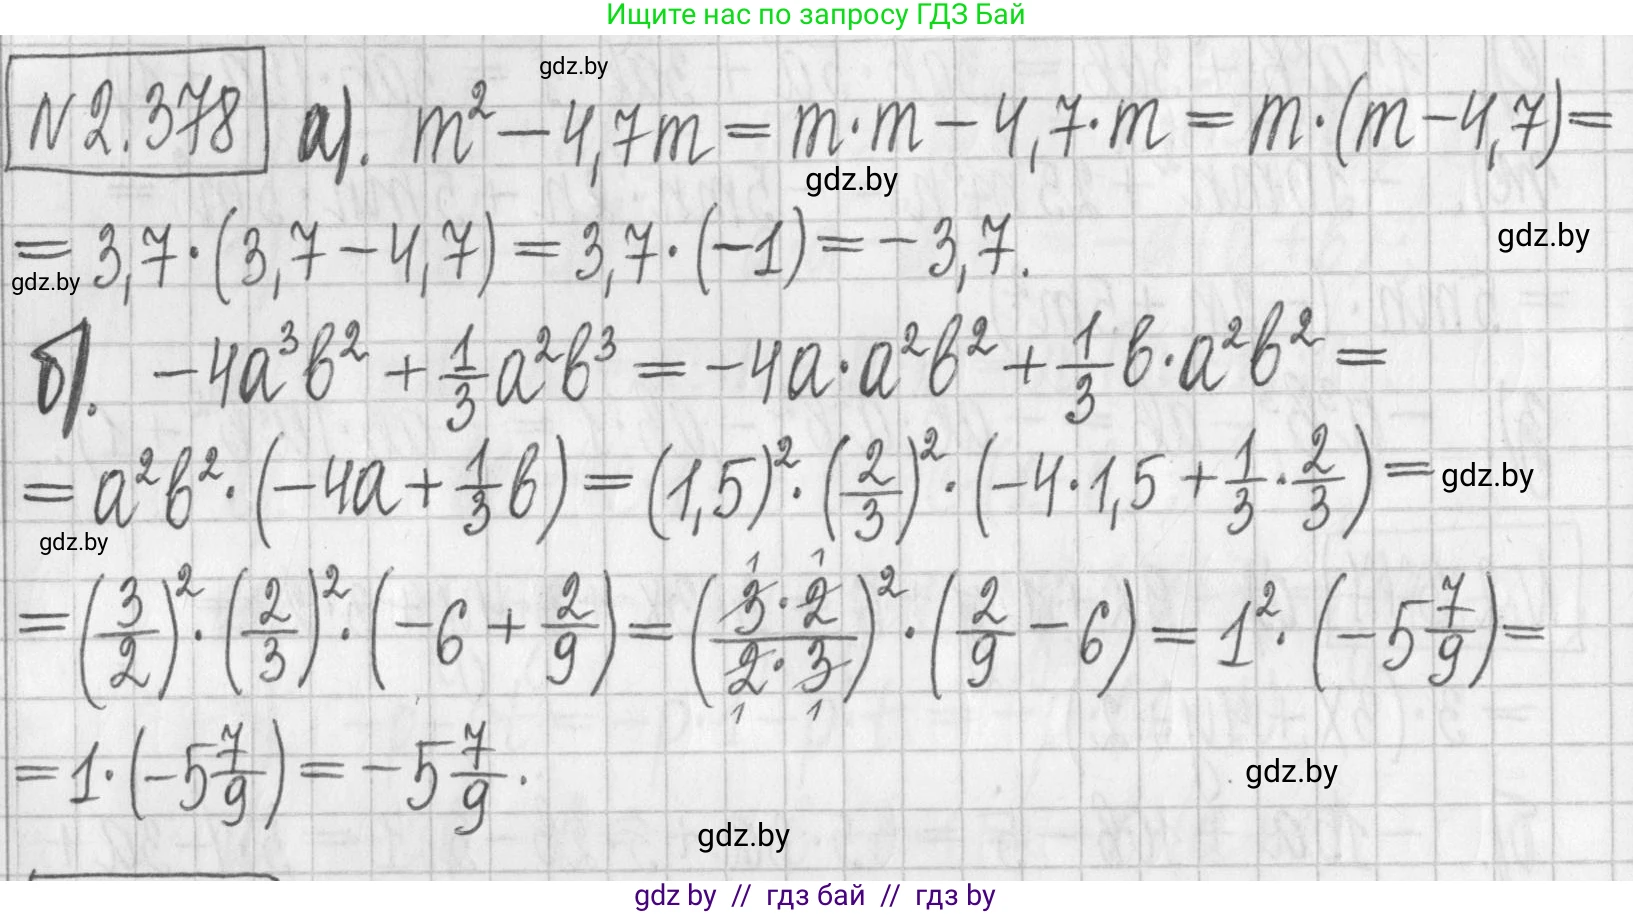 Ищите нас по запросу ГДЗ Бай
gdz.by
№2.378 а). m² − 4,7m = m·m − 4,7·m = m·(m − 4,7) =
gdz.by
= 3,7·(3,7 − 4,7) = 3,7·(−1) = −3,7.
gdz.by
gdz.by
б). −4a³b² + 1/3 a²b³ = −4a·a²b² + 1/3 b·a²b² =
= a²b²·(−4a + 1/3 b) = (1,5)²·(2/3)²·(−4·1,5 + 1/3·2/3) =
gdz.by
gdz.by
= (3/2)²·(2/3)²·(−6 + 2/9) = (3·2/2·3)²·(2/9 − 6) = 1²·(−5 7/9) =
1 1
1 1
= 1·(−5 7/9) = −5 7/9.
gdz.by
gdz.by
gdz by // гдз бай // гдз by